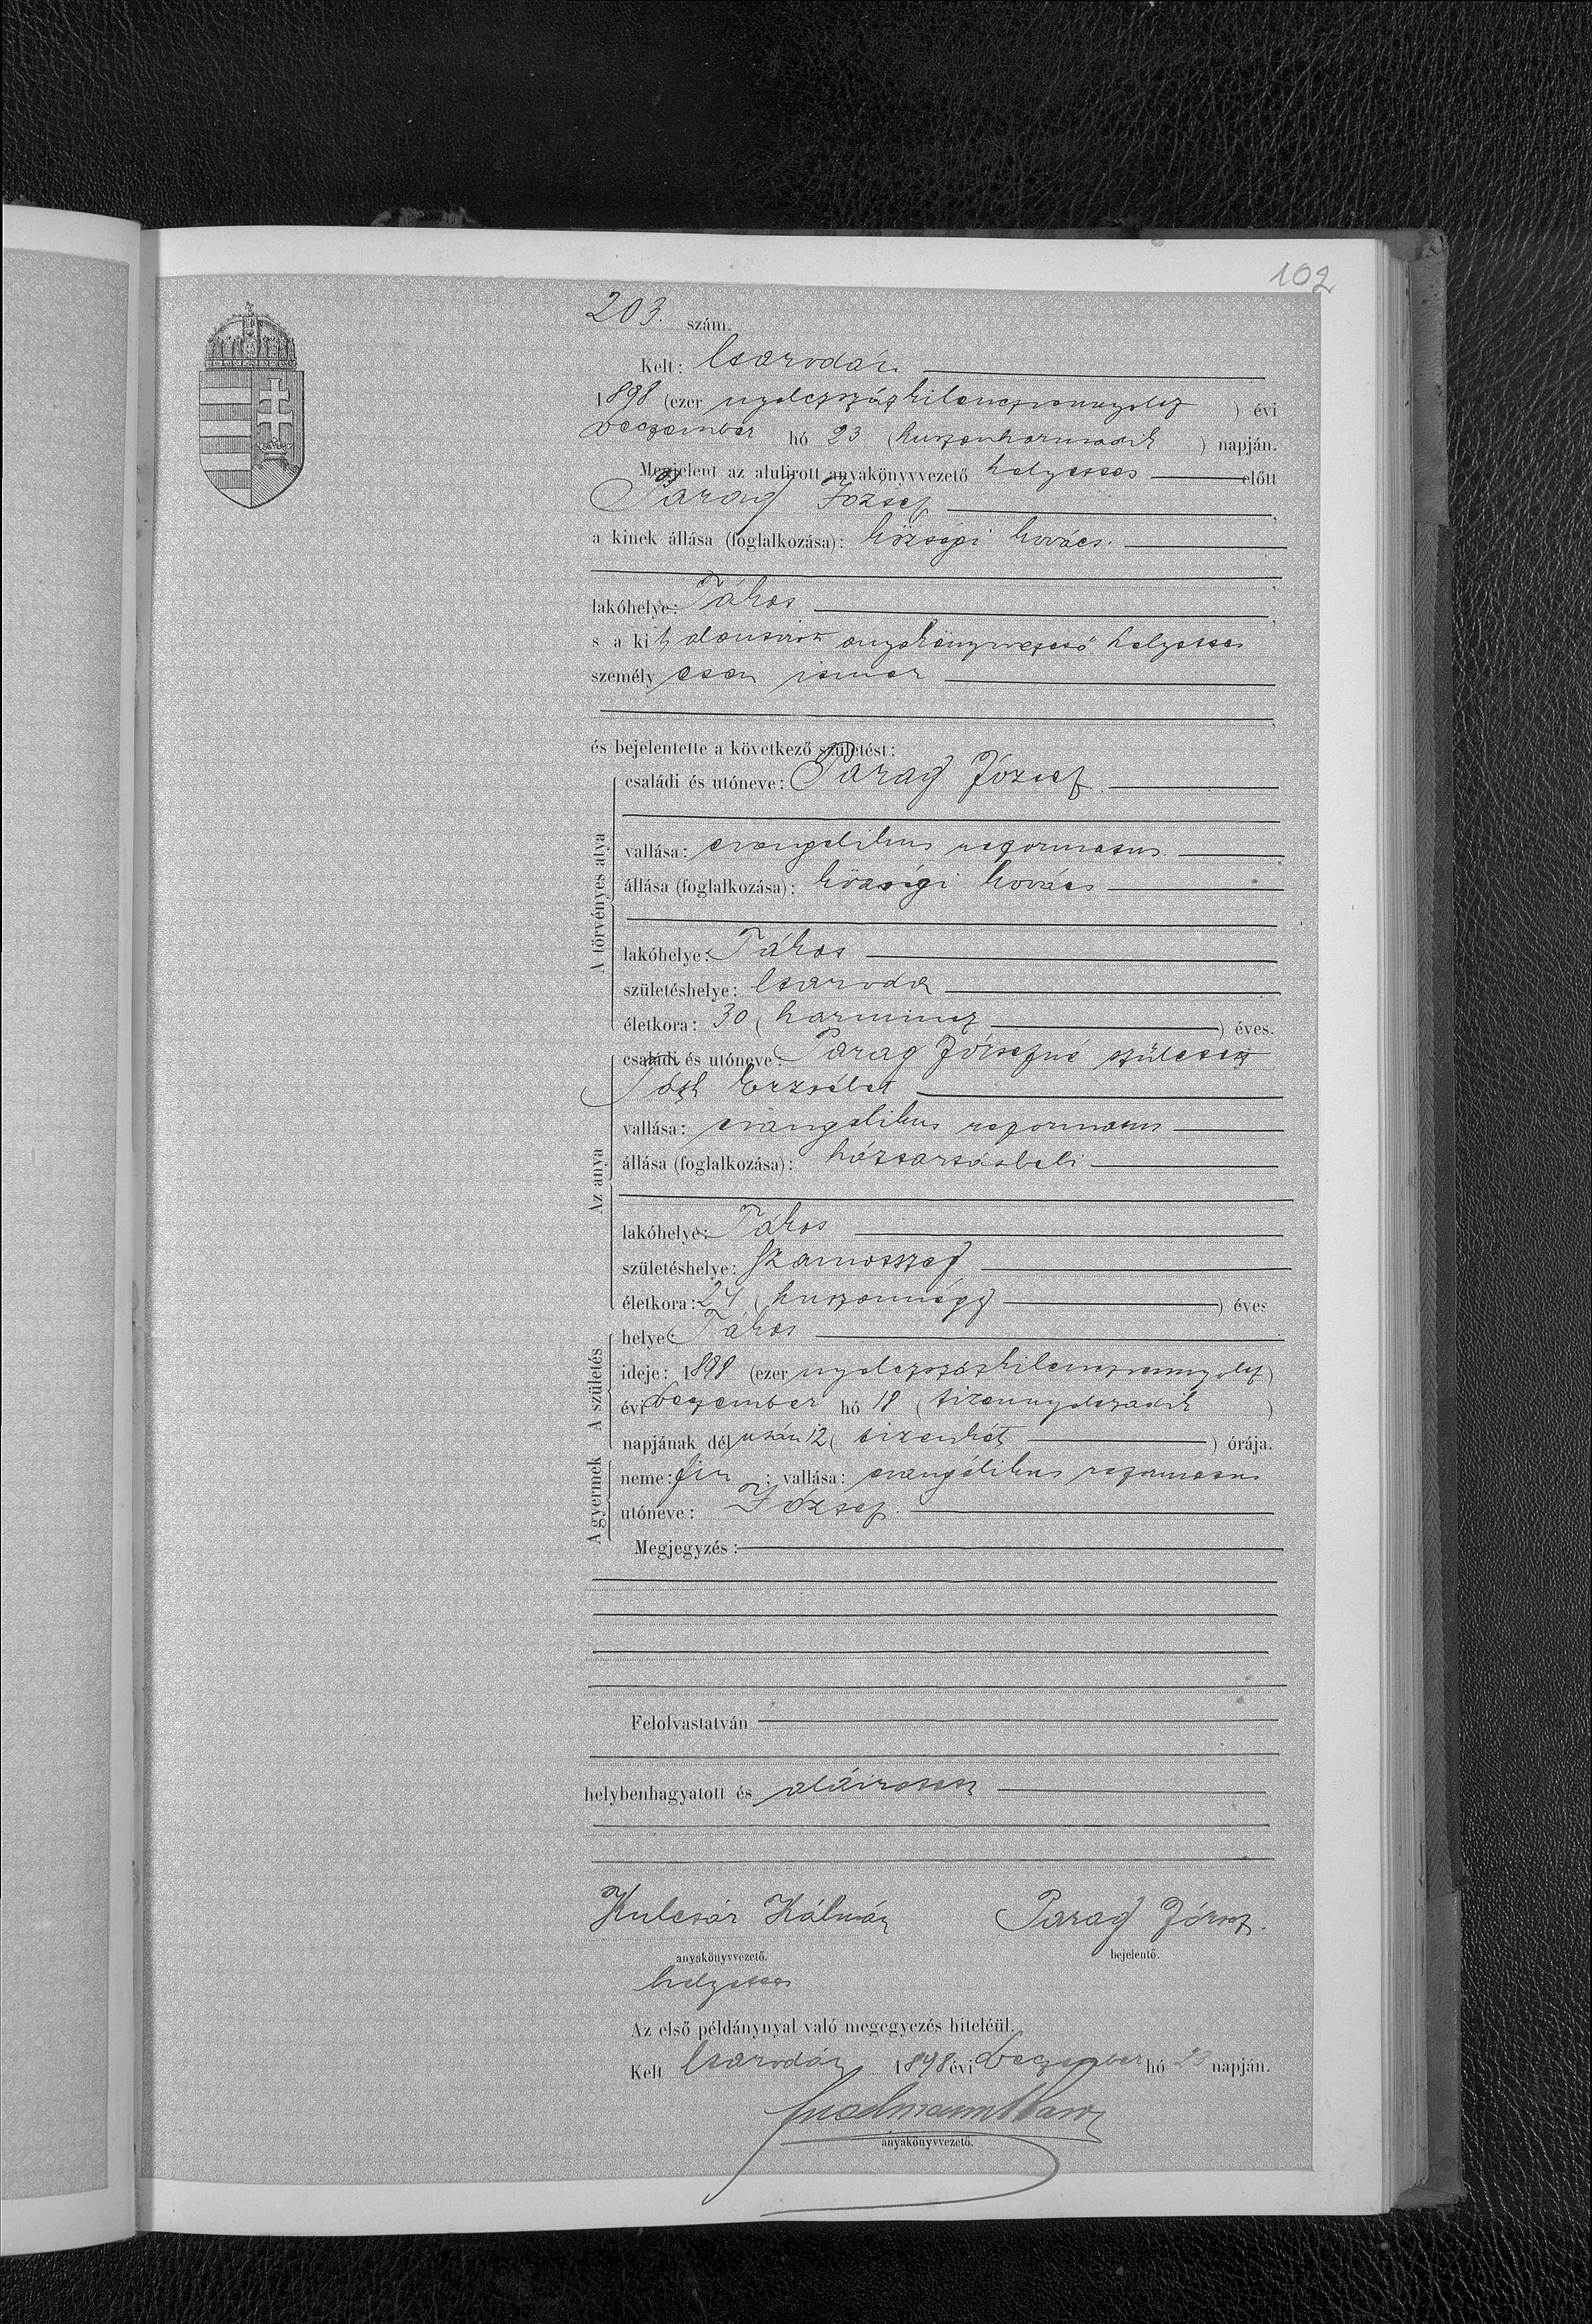 102
203. szám.
Kelt: Csarodán
1898 (ezer nyolczszázkilenczvennyolcz) évi
Deczember hó 23 (huszonharmadik) napján.
Megjelent az alulirott anyakönyvvezető helyettes előtt
Parag József,
a kinek állása (foglalkozása): községi kovács.
lakóhelye: Tákos,
s a kit alanirott anyakönyvvezető helyettes
személyesen ismer
és bejelentette a következő születést:
A törvényes atya
családi és utóneve: Parag József.
vallása: evangelikus reformatus.
állása (foglalkozása): községi kovács
lakóhelye: Tákos
születéshelye: Csaroda
életkora: 30 (harmincz) éves.
Az anya
családi és utóneve: Parag Józsefné született
Tóth Erzsébet
vallása: evangelikus reformatus
állása (foglalkozása): háztartásbeli
lakóhelye: Tákos
születéshelye: Szamosszeg
életkora: 24 (huszonnégy) éves
A születés
helye: Tákos
ideje: 1898 (ezer nyolczszázkilenczvennyolcz)
évi Deczember hó 18 (tizennyolczadik)
napjának délután 12 (tizenkét) órája.
A gyermek
neme: fiu; vallása: evangélikus reformatus
utóneve: József.
Megjegyzés:
Felolvastatván
helybenhagyatott és aláiratott
Kulcsár Kálmán Parag József.
anyakönyvvezető. bejelentő.
helyettes
Az első példánynyal való megegyezés hiteléül.
Kelt Csarodán 1898 évi Deczember hó 23 napján.
anyakönyvvezető.